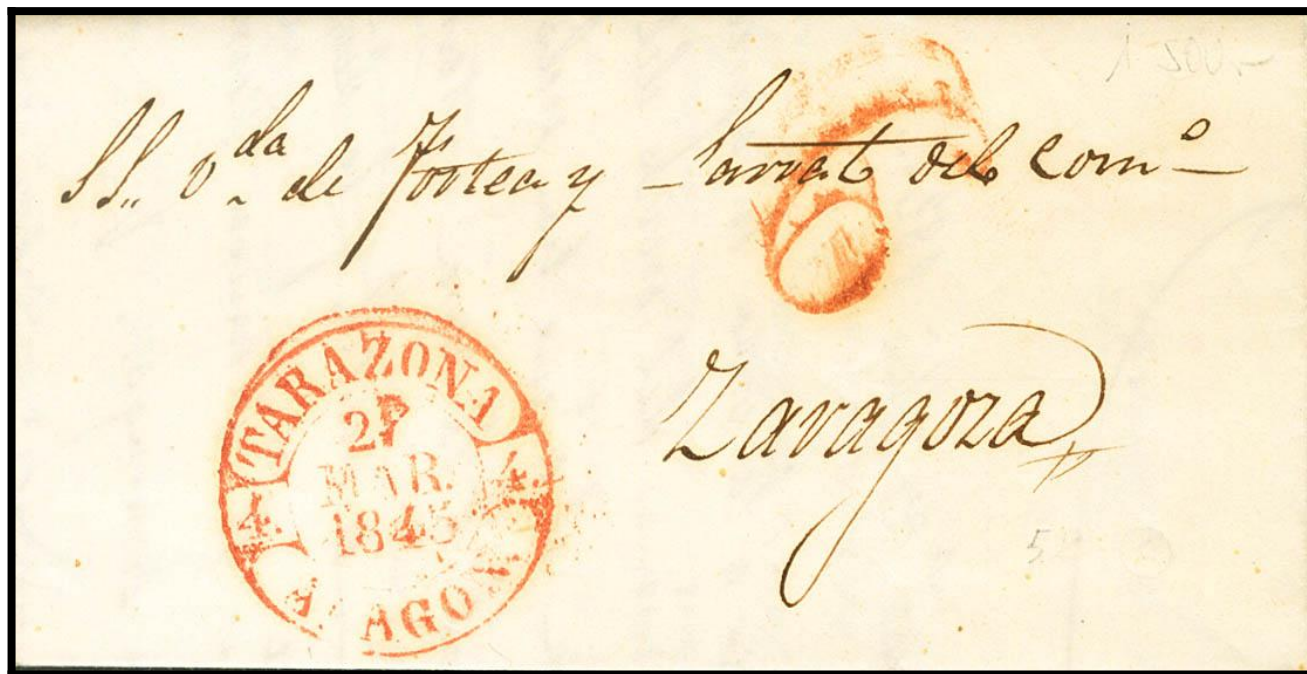 SS. V.da de Fortea y Sarrat del Com.o
Zaragoza
TARAZONA
MAR.
1845
4 4
ARAGON